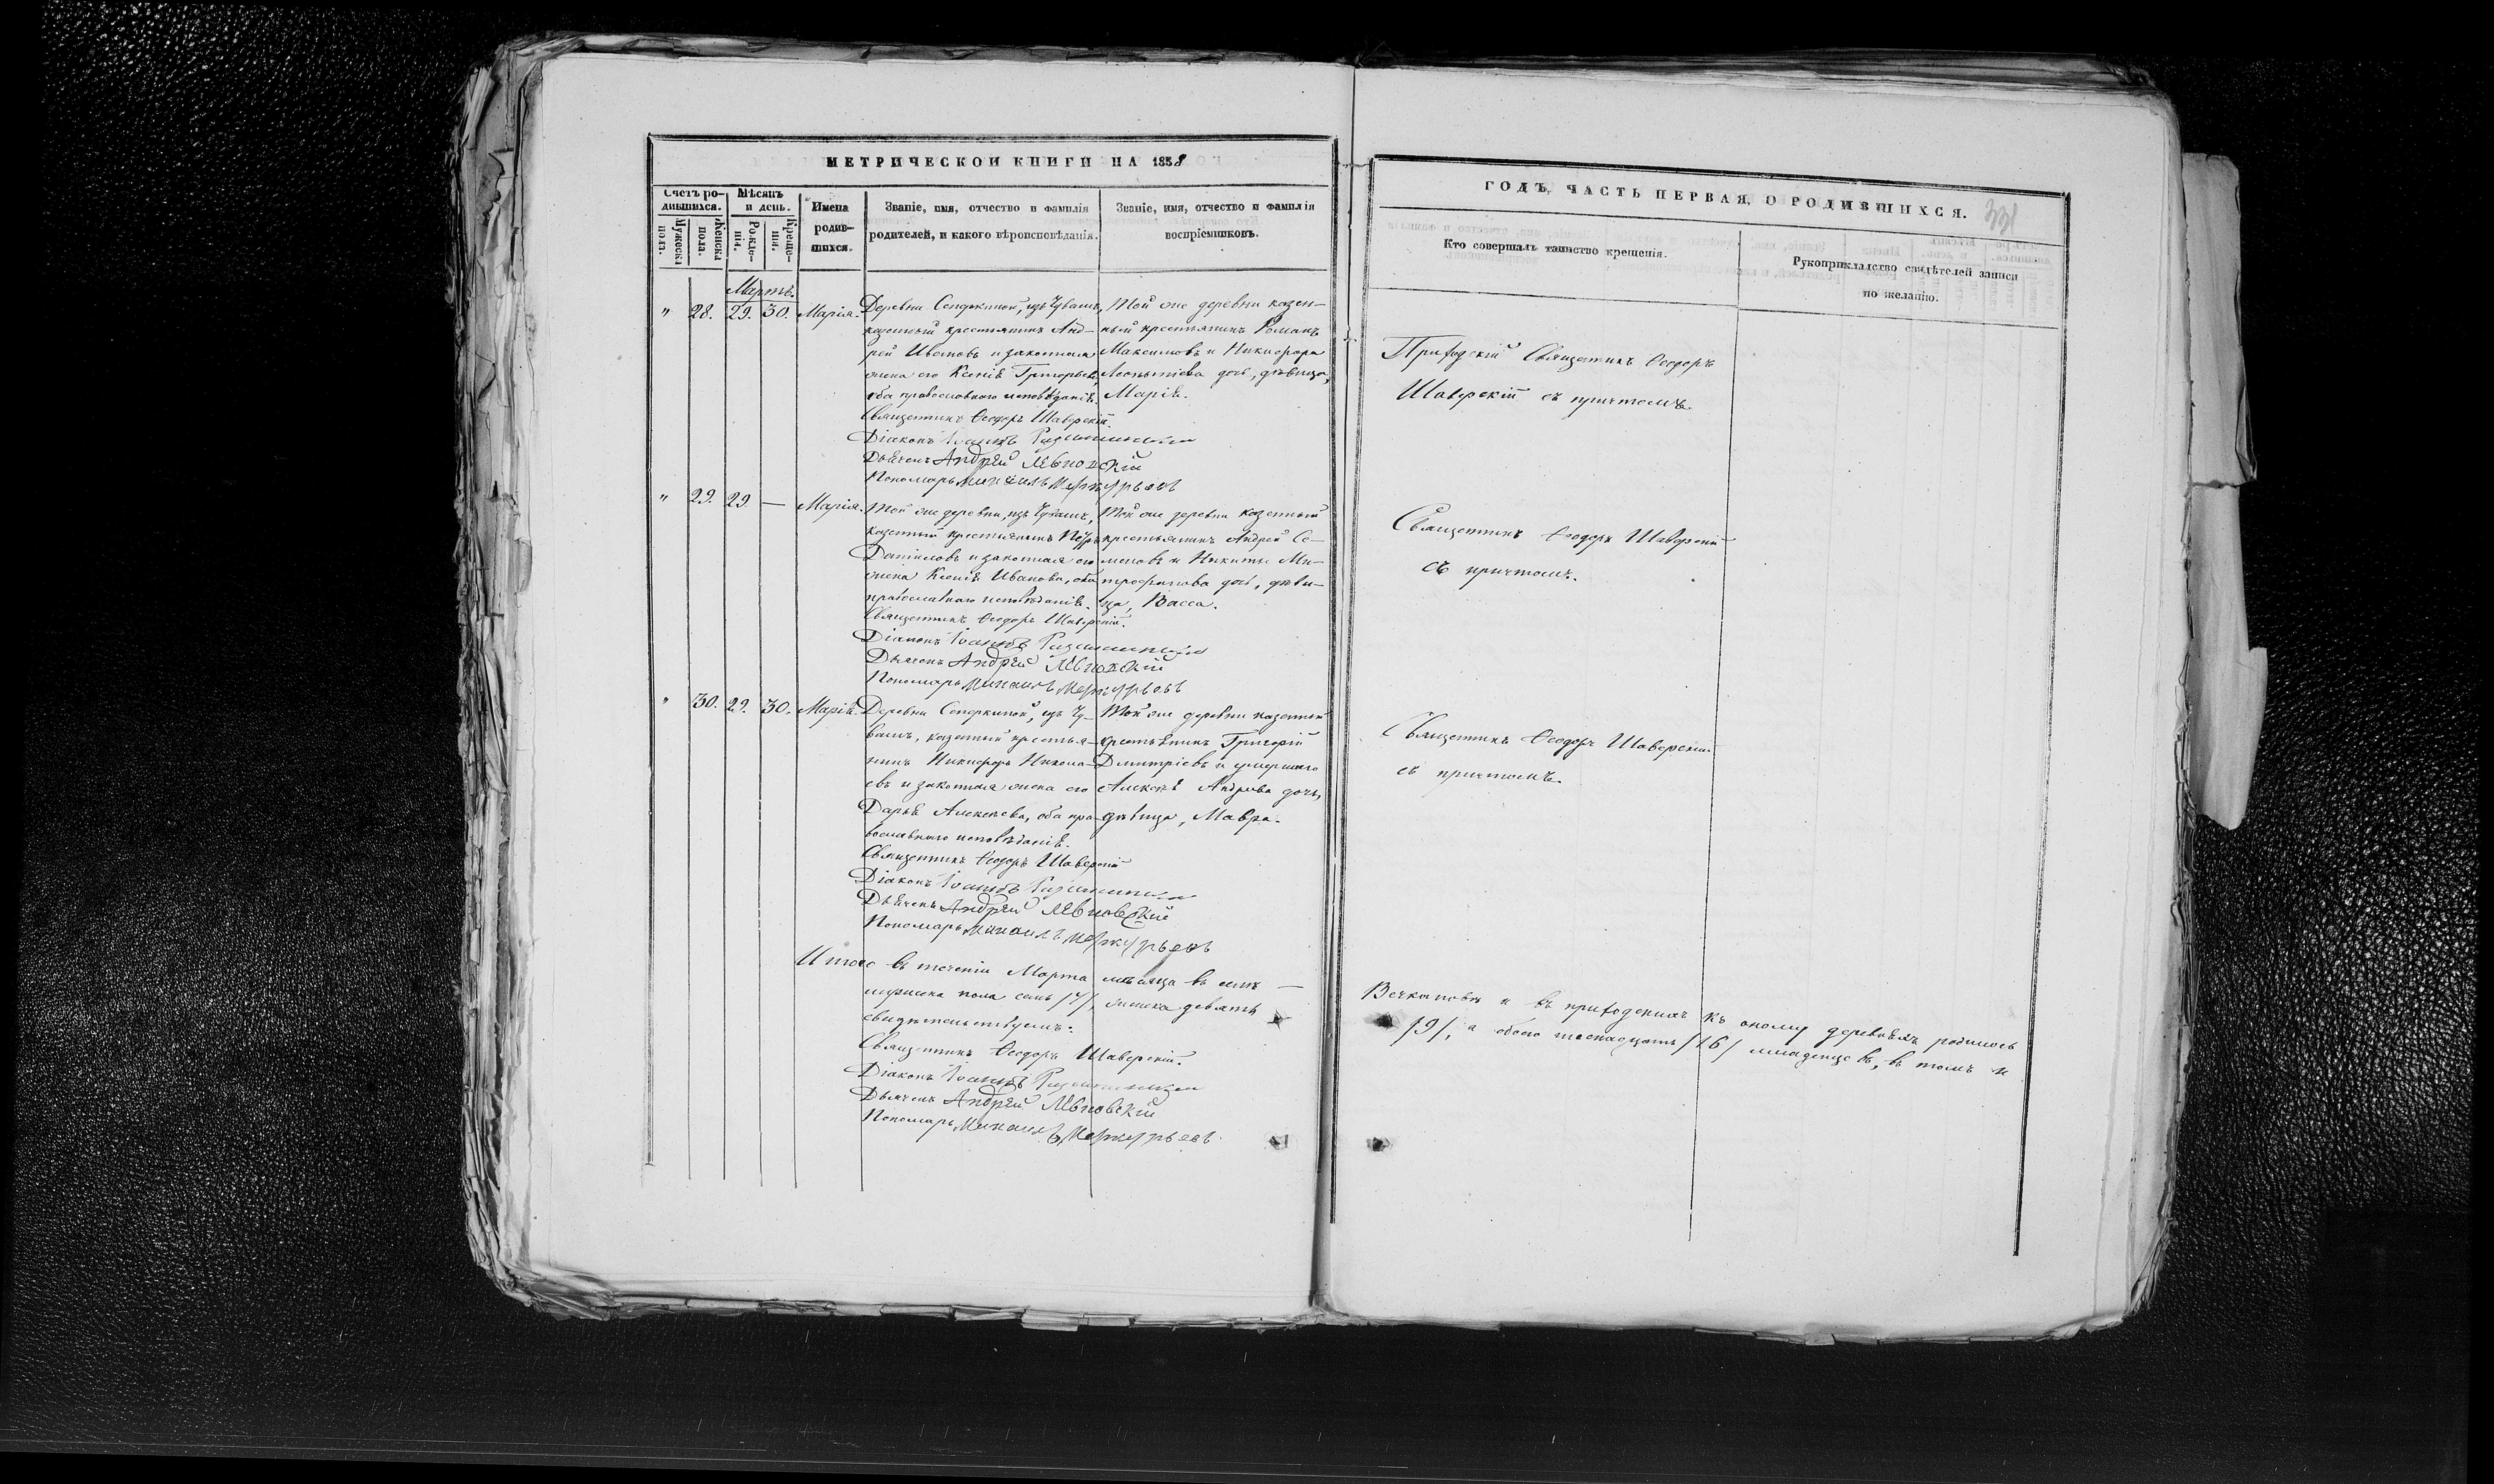 МЕТРИЧЕСКОЙ КНИГИ НА 1858
Счетъ ро-
дившихся.
Мужеска
пола.
Женска
пола.
Мѣсяцъ
и день.
Рожде-
нія.
Креще-
нія.
Имена
родив-
шихся.
Званіе, имя, отчество и фамилія
родителей, и какого вѣроисповѣданія.
Званіе, имя, отчество и фамилія
воспріемниковъ.
Мартъ.
" 28. 29. 30. Марія.
Деревни изъ Чувашъ,
казенный крестьянинъ Анд-
рей Ивановъ и законная
жена его Ксенія Григорьева,
оба православнаго исповѣданія.
Священникъ Ѳеодоръ Шаверскій.
Діаконъ Іоаннъ
Дьячекъ Андрей
Пономарь Михаилъ Меркурьевъ
Той же деревни казен-
ный крестьянинъ Романъ
Максимовъ и Никифора
Леонтіева дочь, дѣвица,
Марія.
" 29. 29 — Марія.
Той же деревни, изъ Чувашъ,
казенный крестьянинъ Петръ
Даниловъ и законная его
жена Ксенія Иванова, оба
православнаго исповѣданія.
Священникъ Ѳеодоръ Шаверскій.
Діаконъ Іоаннъ
Дьячекъ Андрей
Пономарь Михаилъ Меркурьевъ
Той же деревни казенный
крестьянинъ Андрей Се-
меновъ и Никиты Ми-
трофанова дочь, дѣви-
ца, Васса.
" 30. 29. 30. Марія.
Деревни изъ Чу-
вашъ, казенный крестья-
нинъ Никифоръ Никола-
евъ и законная жена его
Дарья Алексѣева, оба пра-
вославнаго исповѣданія.
Священникъ Ѳеодоръ Шаверскій
Діаконъ Іоаннъ
Дьячекъ Андрей
Пономарь Михаилъ Меркурьевъ
Той же деревни казенный
крестьянинъ Григорій
Дмитріевъ и умершаго
Алексѣя Андреева дочь,
дѣвица, Мавра.
Итого въ теченіи Марта мѣсяца въ селѣ —
мужеска пола семь /7/, женска девять
свидѣтельствуемъ:
Священникъ Ѳеодоръ Шаверскій.
Діаконъ Іоаннъ
Дьячекъ Андрей
Пономарь Михаилъ Меркурьевъ.
ГОДЪ, ЧАСТЬ ПЕРВАЯ, О РОДИВШИХСЯ.
331
Кто совершалъ таинство крещенія.
Рукоприкладство свидѣтелей записи
по желанію.
Приходскій Священникъ Ѳеодоръ
Шаверскій съ причтомъ.
Священникъ Ѳеодоръ Шаверскій
съ причтомъ.
Священникъ Ѳеодоръ Шаверскій
съ причтомъ.
и въ приходскихъ къ оному деревняхъ родилось
/9/, а обоего шестнадцать /16/ младенцевъ, въ томъ и